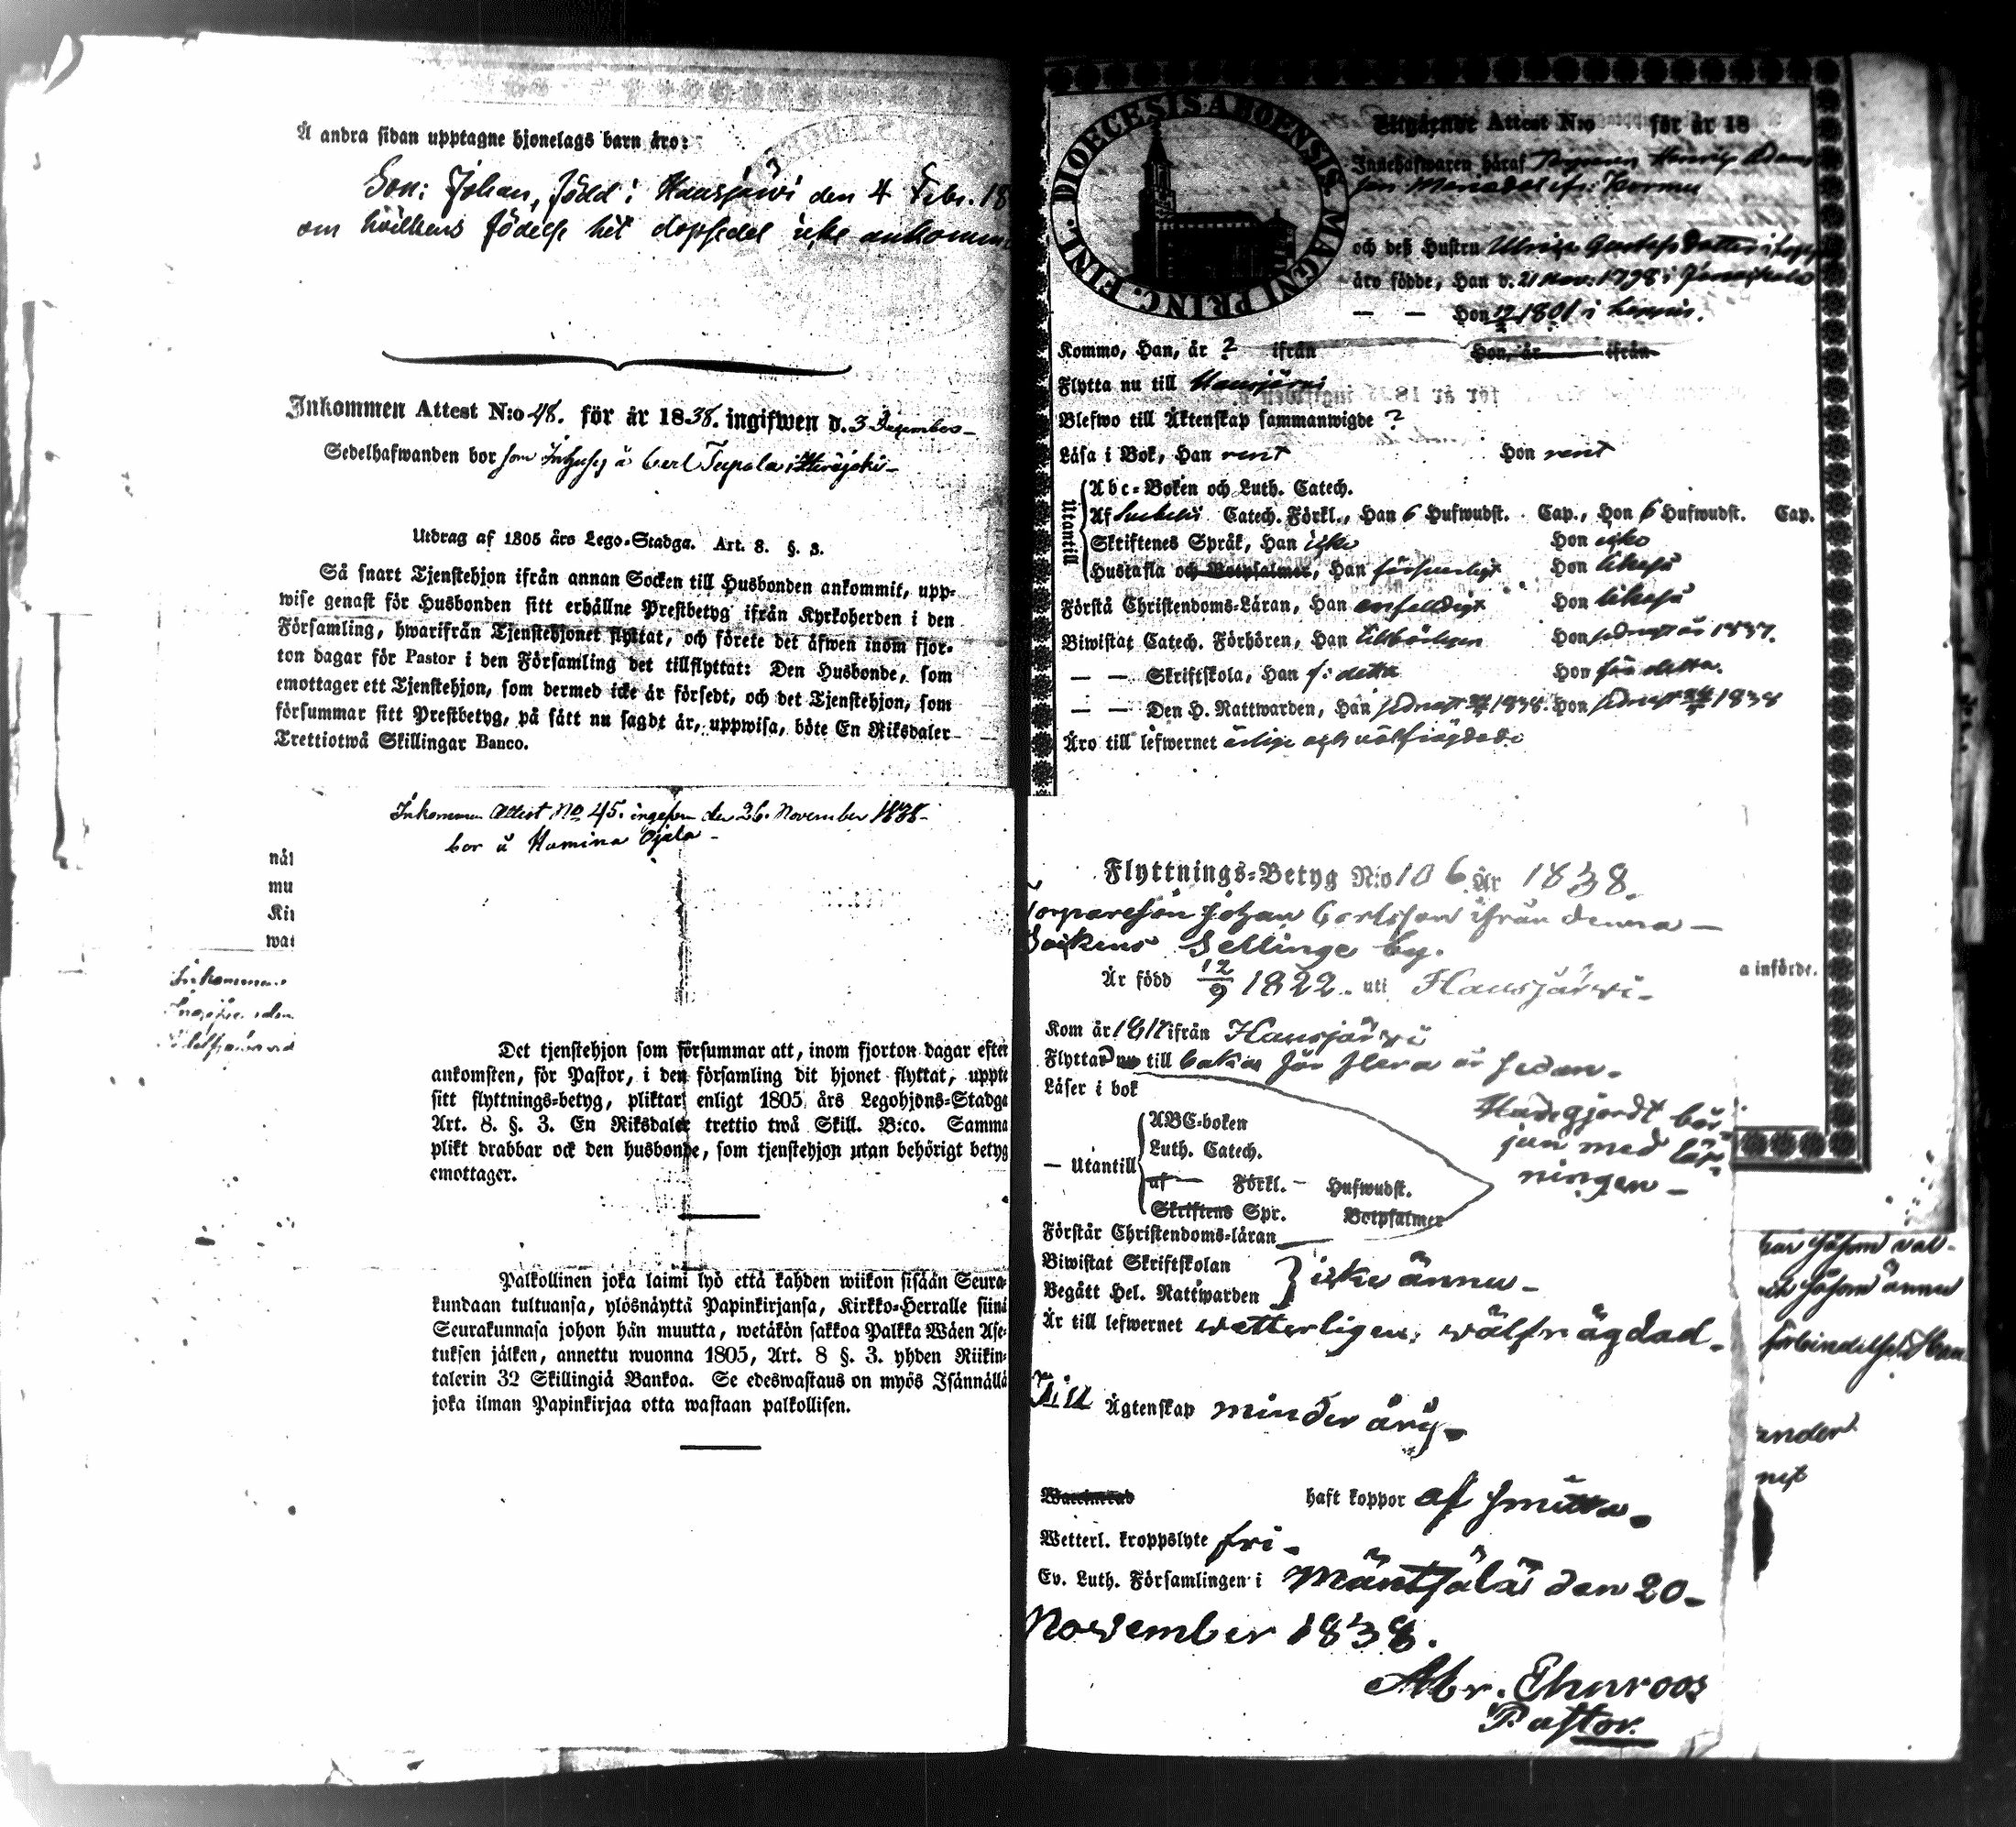 Å andra sidan upptagne hjonelags barn äro:
Son: Johan, född i Hausjärvi den 4 Febr. 18
om hvilkens födelse hit dopsedel icke ankommi
Inkommen Attest N:o 48. för år 1838. ingifwen d. 3 December
Sedelhafwanden bor som Inhyses å Carl
Utdrag af 1805 års Lego-Stadga. Art. 8. §. 3.
Så snart Tjenstehjon ifrån annan Socken till Husbonden ankommit, upp-
wise genast för Husbonden sitt erhållne Prestbetyg ifrån Kyrkoherden i den
Församling, hwarifrån Tjenstehjonet flyttat, och förete det äfwen inom fjor-
ton dagar för Pastor i den Församling det tillflyttat: Den Husbonde, som
emottager ett Tjenstehjon, som dermed icke är försedt, och det Tjenstehjon, som
försummar sitt Prestbetyg, på sätt nu sagdt är, uppwisa, böte En Riksdaler
Trettiotwå Skillingar Banco.
Inkommen Attest No 45. ingifven den 26. November 1838
bor å Hamina Ojala
näl
mu
Kir
wai
Inkommen
Det tjenstehjon som försummar att, inom fjorton dagar efter
ankomsten, för Pastor, i den församling dit hjonet flyttat, uppte
sitt flyttnings=betyg, pliktar enligt 1805 års Legohjons=Stadga
Art. 8. §. 3. En Riksdaler trettio twå Skill. B:co. Samma
plikt drabbar ock den husbonde, som tjenstehjon utan behörigt betyg
emottager.
Palkollinen joka laimi lyö että kahden wiikon sisään Seura-
kundaan tultuansa, ylösnäyttä Papinkirjansa, Kirkko=Herralle siinä
Seurakunnasa johon hän muutta, wetäkön sakkoa Palkka Wäen Ase-
tuksen jälken, annettu wuonna 1805, Art. 8 §. 3. yhden Riikin-
talerin 32 Skillingiä Bankoa. Se edeswastaus on myös Isännällä
joka ilman Papinkirjaa otta wastaan palkollisen.
DIOECESIS ABOENSIS MAGNI PRINC. FINL.
Utgående Attest N:o för år 18
Innehafwaren häraf Torparen Henrik Adams
son
och deß Hustru Ulrica Gustafs Dotter i
äro födde, Han d. 21 Nov. 1798 i Janakkala
— — Hon 1801 i Loppis.
Kommo, Han, år ? ifrån Hon, år ifrån
Flytta nu till Hausjärvi
Blefwo till Äktenskap sammanwigde ?
Läsa i Bok, Han rent Hon rent
Utantill
Abc=Boken och Luth. Catech.
Af Catech. Förkl., Han 6 Hufwudst. Cap., Hon 6 Hufwudst. Cap.
Skriftenes Språk, Han icke Hon icke
Hustafla och Botpsalmer, Han försvarligt Hon likaså
Förstå Christendoms=Läran, Han enfaldigt Hon likaså
Biwistat Catech. Förhören, Han Hon sednast år 1837.
— — Skriftskola, Han f: detta Hon för detta.
— — Den H. Nattwarden, Han sednast 1838. Hon sednast 1838
Äro till lefwernet ärlige och välfrägdade
Flyttnings=Betyg N:o 106 År 1838.
Torparesson Johan Carlsson ifrån denna
Sockens Sellinge by.
Är född 12/9 1822. uti Hausjärvi.
Kom år ifrån Hausjärvi
Flyttar nu till baka för flera år sedan.
Läser i bok
Hade gjordt bör
jan med läs-
ningen
— Utantill
ABC=boken
Luth. Catech.
af — Förkl. — Hufwudst.
Skriftens Spr. Botpsalmer
Förstår Christendoms=läran
Biwistat Skriftskolan
Begått Hel. Nattwarden
icke ännu
Är till lefwernet vetterligen, wälfrägdad
Till Ägtenskap minderårig
Waccinerad haft koppor af smitta
Wetterl. kroppslyte fri
Ev. Luth. Församlingen i Mäntsälä den 20
November 1838.
Abr. Ehnroos
Pastor.
a införde.
såsom ännu